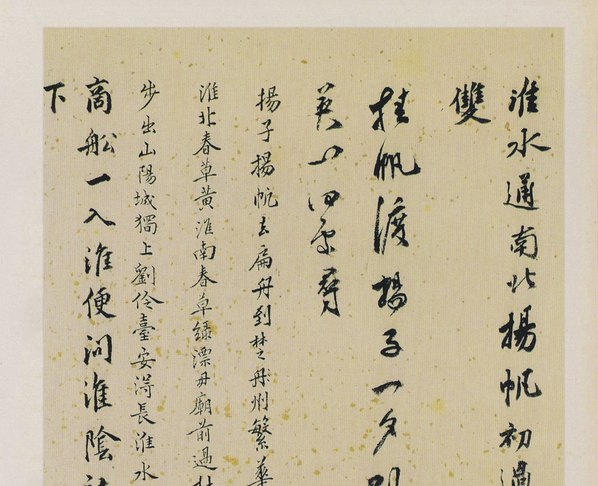 淮水通南北揚帆初過
雙
挂帆渡揚子一夕
美人
揚子揚帆去扁舟到楚州繁華
淮北春草黃淮南春草綠漂母廟前過
步出山陽城獨上劉伶臺安得長淮水
商船一入淮便問淮陰
下